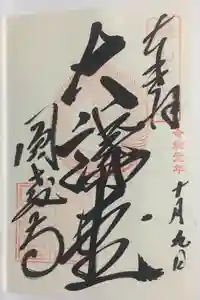 奉拝
令和元年
十月九日
大講堂
園城寺